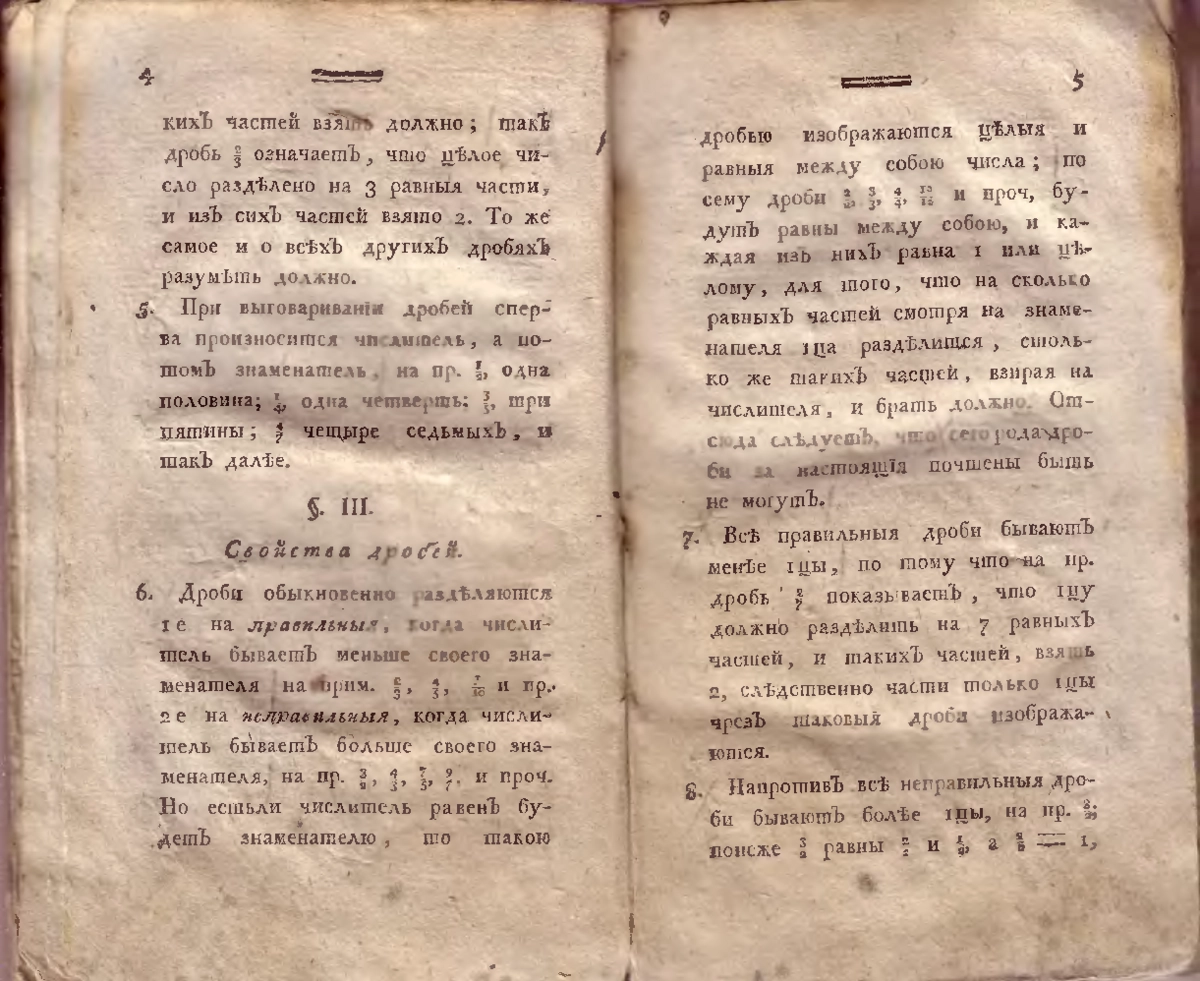 4
кихЪ частей взять должно; такЪ
дробь 2/3 означаетЪ, что цѣлое чи-
сло раздѣлено на 3 равныя части,
и изЪ сихЪ частей взято 2. То же
самое и о всѣхЪ другихЪ дробяхЪ
разумѣть должно.
5. При выговариваніи дробей спер-
ва произносится числитель, а по-
томЪ знаменатель, на пр. 1/2, одна
половина; 1/4, одна четверть; 3/5, три
пятины; 4/7 четыре седьмыхЪ, и
такЪ далѣе.
§. III.
Свойства дробей.
6. Дроби обыкновенно раздѣляются
1 е на правильныя, когда числи-
тель бываетЪ меньше своего зна-
менателя на прим. 2/3, 4/5, 7/10 и пр.
2 е на неправильныя, когда числи-
тель бываетЪ больше своего зна-
менателя, на пр. 3/2, 4/3, 7/5, 9/7. и проч.
Но естьли числитель равенЪ бу-
детЪ знаменателю, то такою
5
дробью изображаются цѣлыя и
равныя между собою числа; по
сему дроби 2/2, 3/3, 4/4, и проч, бу-
дутЪ равны между собою, и ка-
ждая изЪ нихЪ равна 1 или цѣ-
лому, для того, что на сколько
равныхЪ частей смотря на знаме-
нателя 1ца раздѣлится, столь-
ко же такихЪ частей, взирая на
числителя, и брать должно. От-
сюда слѣдуетЪ, что сего рода дро-
би за настоящія почтены быть
не могутЪ.
7. Всѣ правильныя дроби бываютЪ
менѣе 1цы, по тому что на пр.
дробь 2/7 показываетЪ, что 1цу
должно раздѣлить на 7 равныхЪ
частей, и такихЪ частей, взять
2, слѣдственно части только 1цы
чрезЪ таковыя дроби изобража-
ются.
8. НапротивЪ всѣ неправильныя дро-
би бываютЪ болѣе 1цы, на пр. 3/2;
понеже 3/2 равны 2/2 и 1/2, а 2/2 = 1,